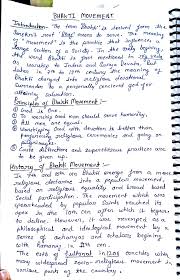 BHAKTI MOVEMENT
Introduction:- The term Bhakti is derived from the
Sanskrit root 'Bhaj' means to serve. The meaning
of movement is the process that influences a
large section of a society. In the early beginning
word Bhakti is first mentioned in
as worship to Indra and
dates in 7th to 12th century the meaning of
Bhakti changed into religious devotion
surrender to a personally conceived god for
attaining salvation.
Principle of Bhakti Movement:-
God is one
To worship God man should serve humanity.
All men are equal
Worshipping God with devotion is better than
performing religious ceremonies and going on
pilgrimages.
Caste distinctions and superstitious practices are
to be given up.
History of Bhakti Movement:-
In the and Bhakti emerge from a mere
religious doctrine into a popular movement
based on religious equality and broad based
social participation. The movement which was
by popular saints reached its
apex in the 10th cen. after which it began
to decline. However, it was revamped as a
philosophical and ideological movement by a
series of acharyas or scholars beginning
with Ramanuja in 11th cen.
The estb. of Sultanat in 1206 coincides with
many widespread religious movement in
various parts of the country.